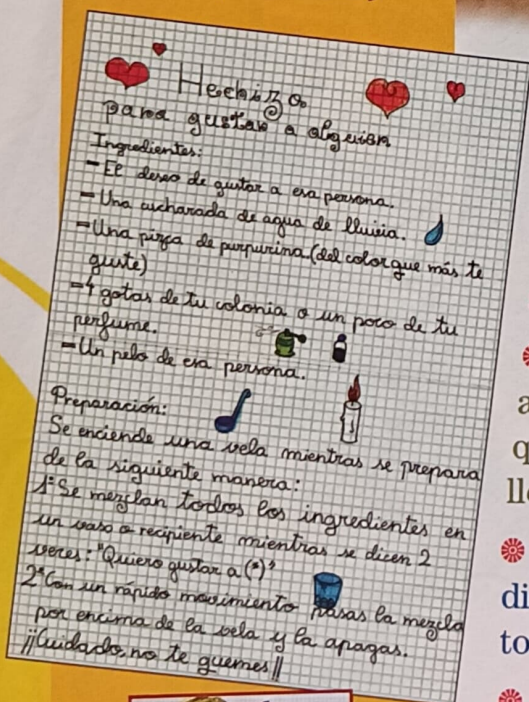 Hechizo
para gustar a alguien
Ingredientes:
- El deseo de gustar a esa persona.
- Una cucharada de agua de lluvia.
- Una pizca de purpurina (del color que más te
guste)
- 4 gotas de tu colonia o un poco de tu
perfume.
- Un pelo de esa persona.
Preparación:
Se enciende una vela mientras se prepara
de la siguiente manera:
1º Se mezclan todos los ingredientes en
un vaso o recipiente mientras se dicen 2
veces: "Quiero gustar a (*)"
2º Con un rápido movimiento pasas la mezcla
por encima de la vela y la apagas.
¡¡Cuidado, no te quemes!!
a
q
ll
di
to